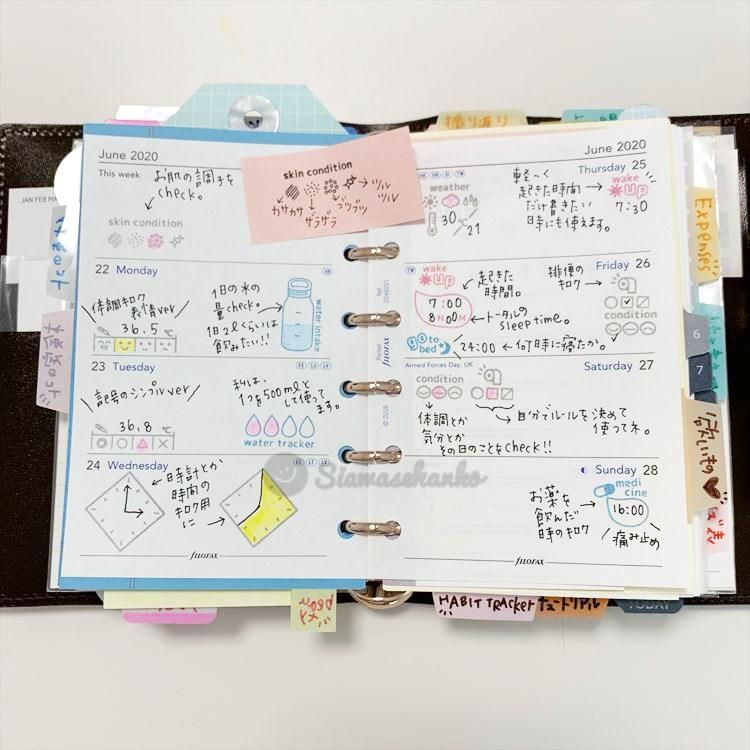 振り返り
June 2020
This week
お肌の調子を
check。
skin condition
skin condition
カサカサ
ザラザラ
ブツブツ
ツルツル
22 Monday
体調キロク
表情ver
36.5
1日の水の
量check。
1日2ℓくらいは
飲みたい!!
water intake
23 Tuesday
記号のシンプルver
36.8
私は、
1つを500mlと
して使って
ます。
water tracker
24 Wednesday
時計とか
時間の
キロク用
に
FILOFAX
June 2020
Thursday 25
weather
30
21
軽〜く
起きた時間
だけ書きたい
時にも使えます。
wake
UP
7:30
Friday 26
wake
UP
7:00
8HOOM
起きた
時間。
トータルの
sleep time。
排便の
キロク
go to
bed
24:00
何時に寝たか
Armed Forces Day, UK
Saturday 27
condition
体調とか
気分とか
その日のことをcheck!!
自分でルールを決めて
使ってネ。
Sunday 28
お薬を
飲んだ
時のキロク
medi
cine
16:00
痛み止め
FILOFAX
Pocket
FILOFAX
© 2018
Siawasehanko
JAN FEB
Expenses
6
7
欲しいもの
HABIT TRACKER
チュートリアル
TODAY